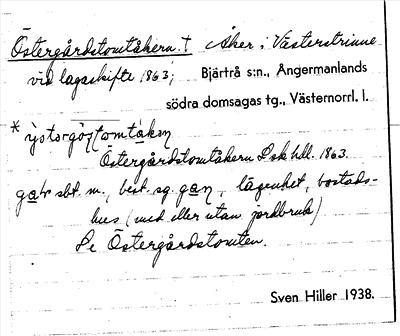 Östergårdstomtåkern. † Åker i Västerstrinne
vid lagaskifte 1863; Bjärtrå s:n., Ångermanlands
södra domsagas tg., Västernorrl. l.
Östergårdstomtåkern Lsk hdl. 1863.
sbt. m., best. sg. gaṇ, lägenhet, bostads-
hus (med eller utan jordbruk)
Se Östergårdstomten.
Sven Hiller 1938.